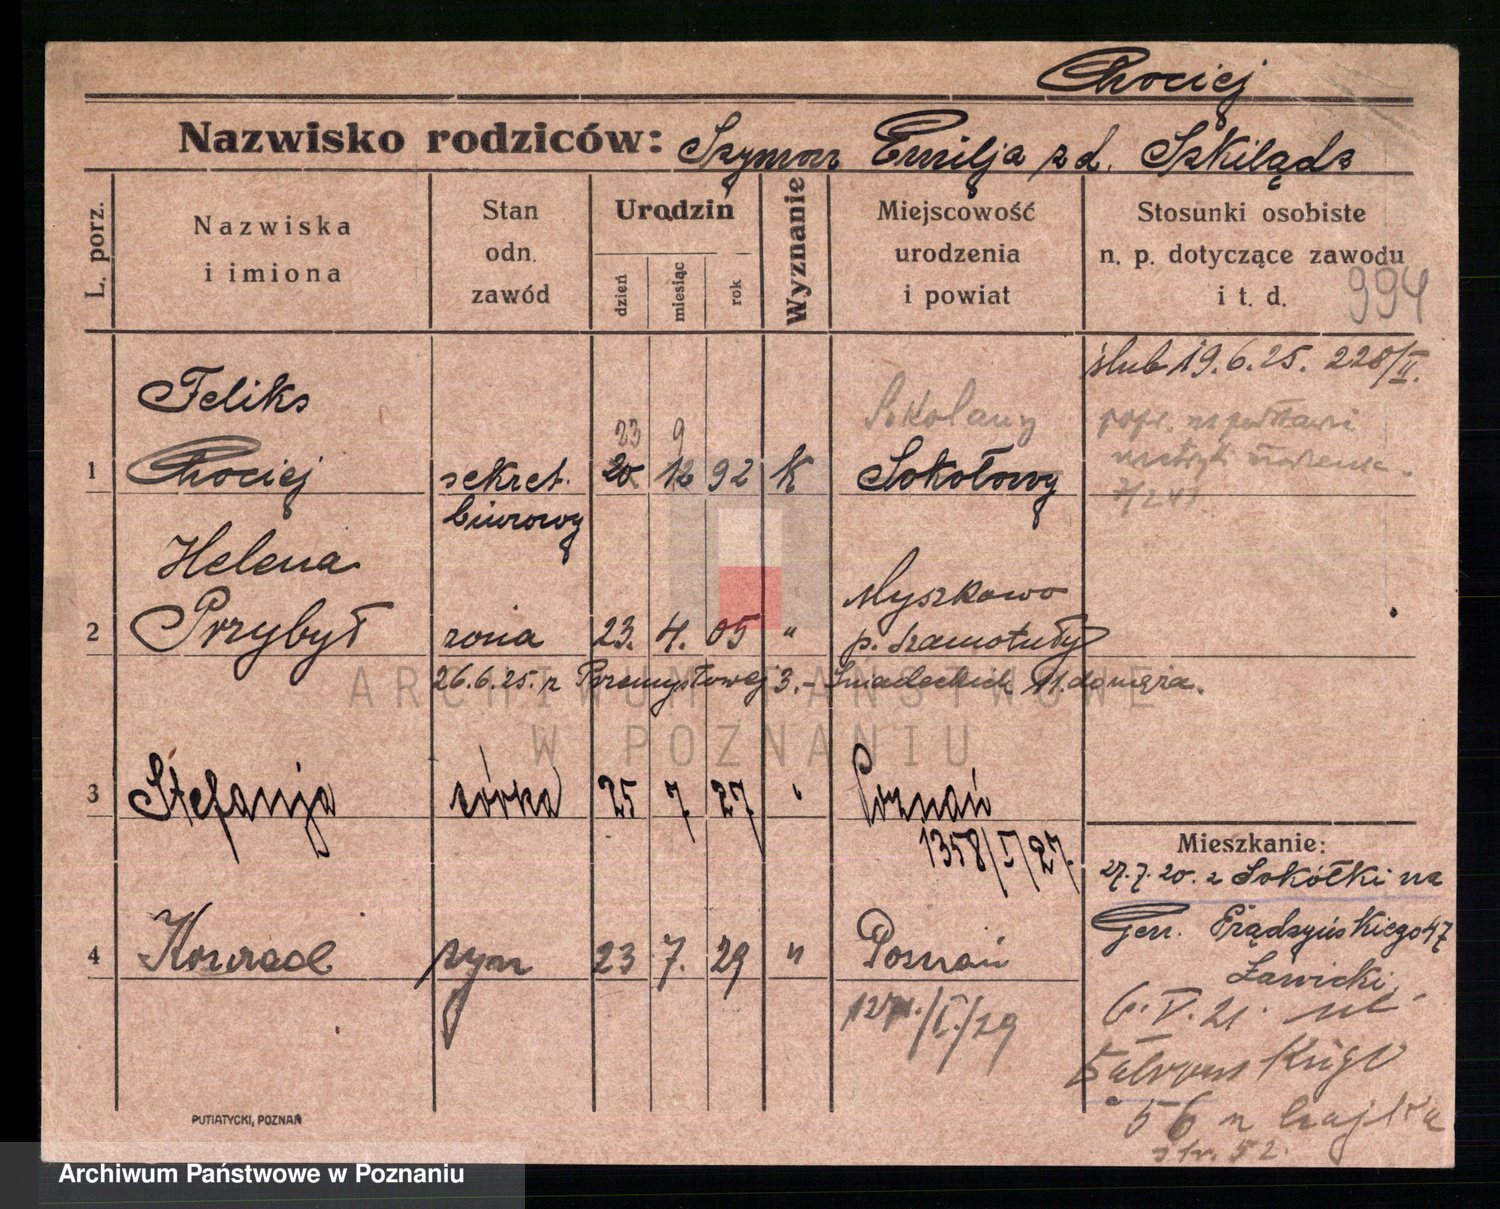 Chociej
Nazwisko rodziców: Szymon Emilja z d. Szkilądz
L. porz.
Nazwiska i imiona
Stan odn. zawód
Urodzin
dzień miesiąc rok
Wyznanie
Miejscowość urodzenia i powiat
Stosunki osobiste n. p. dotyczące zawodu i t. d.
994
ślub 19.6.25. 228/II.
Feliks
Sokolany
23 9
popr. na podstawie
1 Chociej sekret. 20 12 92 K Sokołowy
biurowy
Helena
Myszkowo
2 Przybył żona 23. 4. 05 " p. Szamotuły
26.6.25. z Przemysłowej 3. - Śniadeckich 11. do męża.
3 Stefanja córka 25 7 27 " Poznań
1358/I/27.
Mieszkanie:
27.7.20. z Sokółki na
Gen. Prądzyńskiego 47
Ławicki
4 Konrad syn 23 7. 29 " Poznań
/I./29
6.V.21. ul
56 u
str. 52.
PUTIATYCKI, POZNAŃ
ARCHIWUM PAŃSTWOWE
W POZNANIU
Archiwum Państwowe w Poznaniu